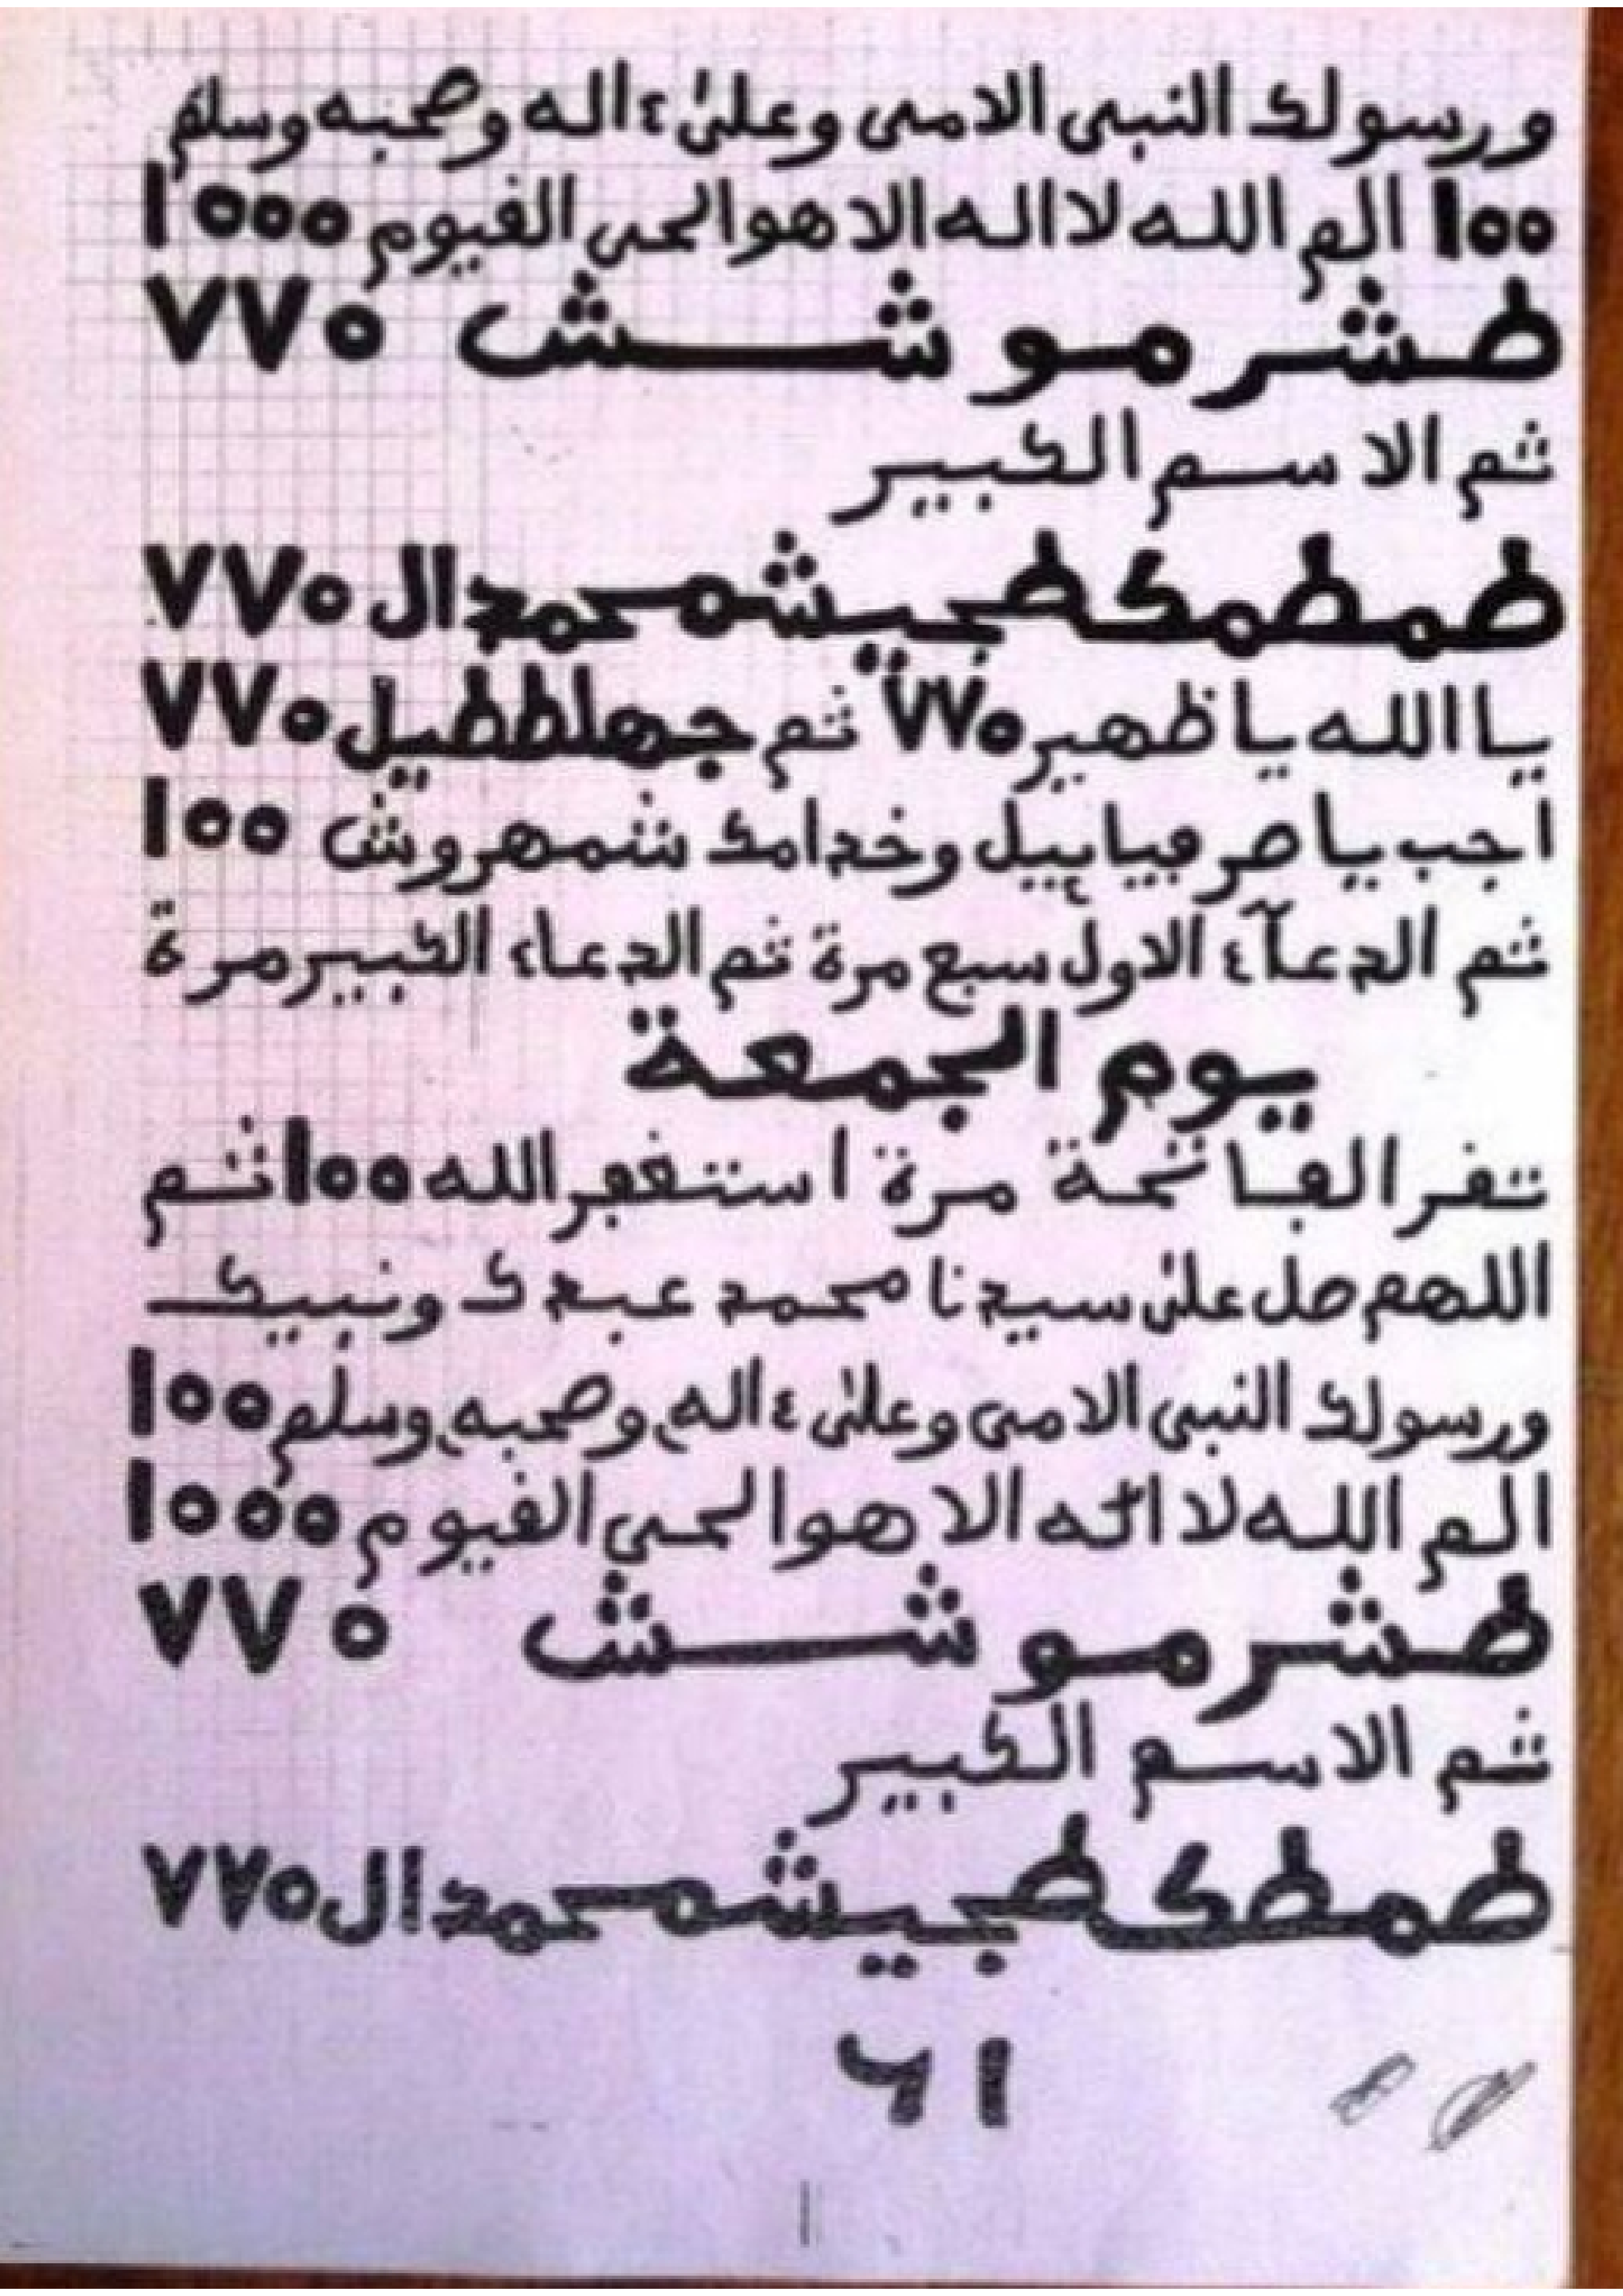 ورسولك النبى الامى وعلىٰ ءاله وصحبه وسلم
١٥٥ الم الله لا اله الا هو الحي القيوم ١٥٥٥
طشرموشــش ٧٧٥
ثم الاسم الكبير
طمطمكطجيشمحمدال ٧٧٥
يا الله يا ظهير ٧٧٥ ثم جهلططيل ٧٧٥
اجب يا صرفياييل وخدامك شمهروش ١٥٥
ثم الدعآء الاول سبع مرة ثم الدعاء الكبير مرة
يوم الجمعة
تقرا الفاتحة مرة استغفر الله ١٥٥ ثم
اللهم صل علىٰ سيدنا محمد عبدك ونبيك
ورسولك النبى الامى وعلىٰ ءاله وصحبه وسلم ١٥٥
الم الله لا اله الا هو الحي القيوم ١٥٥٥
طشرموشــش ٧٧٥
ثم الاسم الكبير
طمطكطجيشمحمدال ٧٧٥
٦١